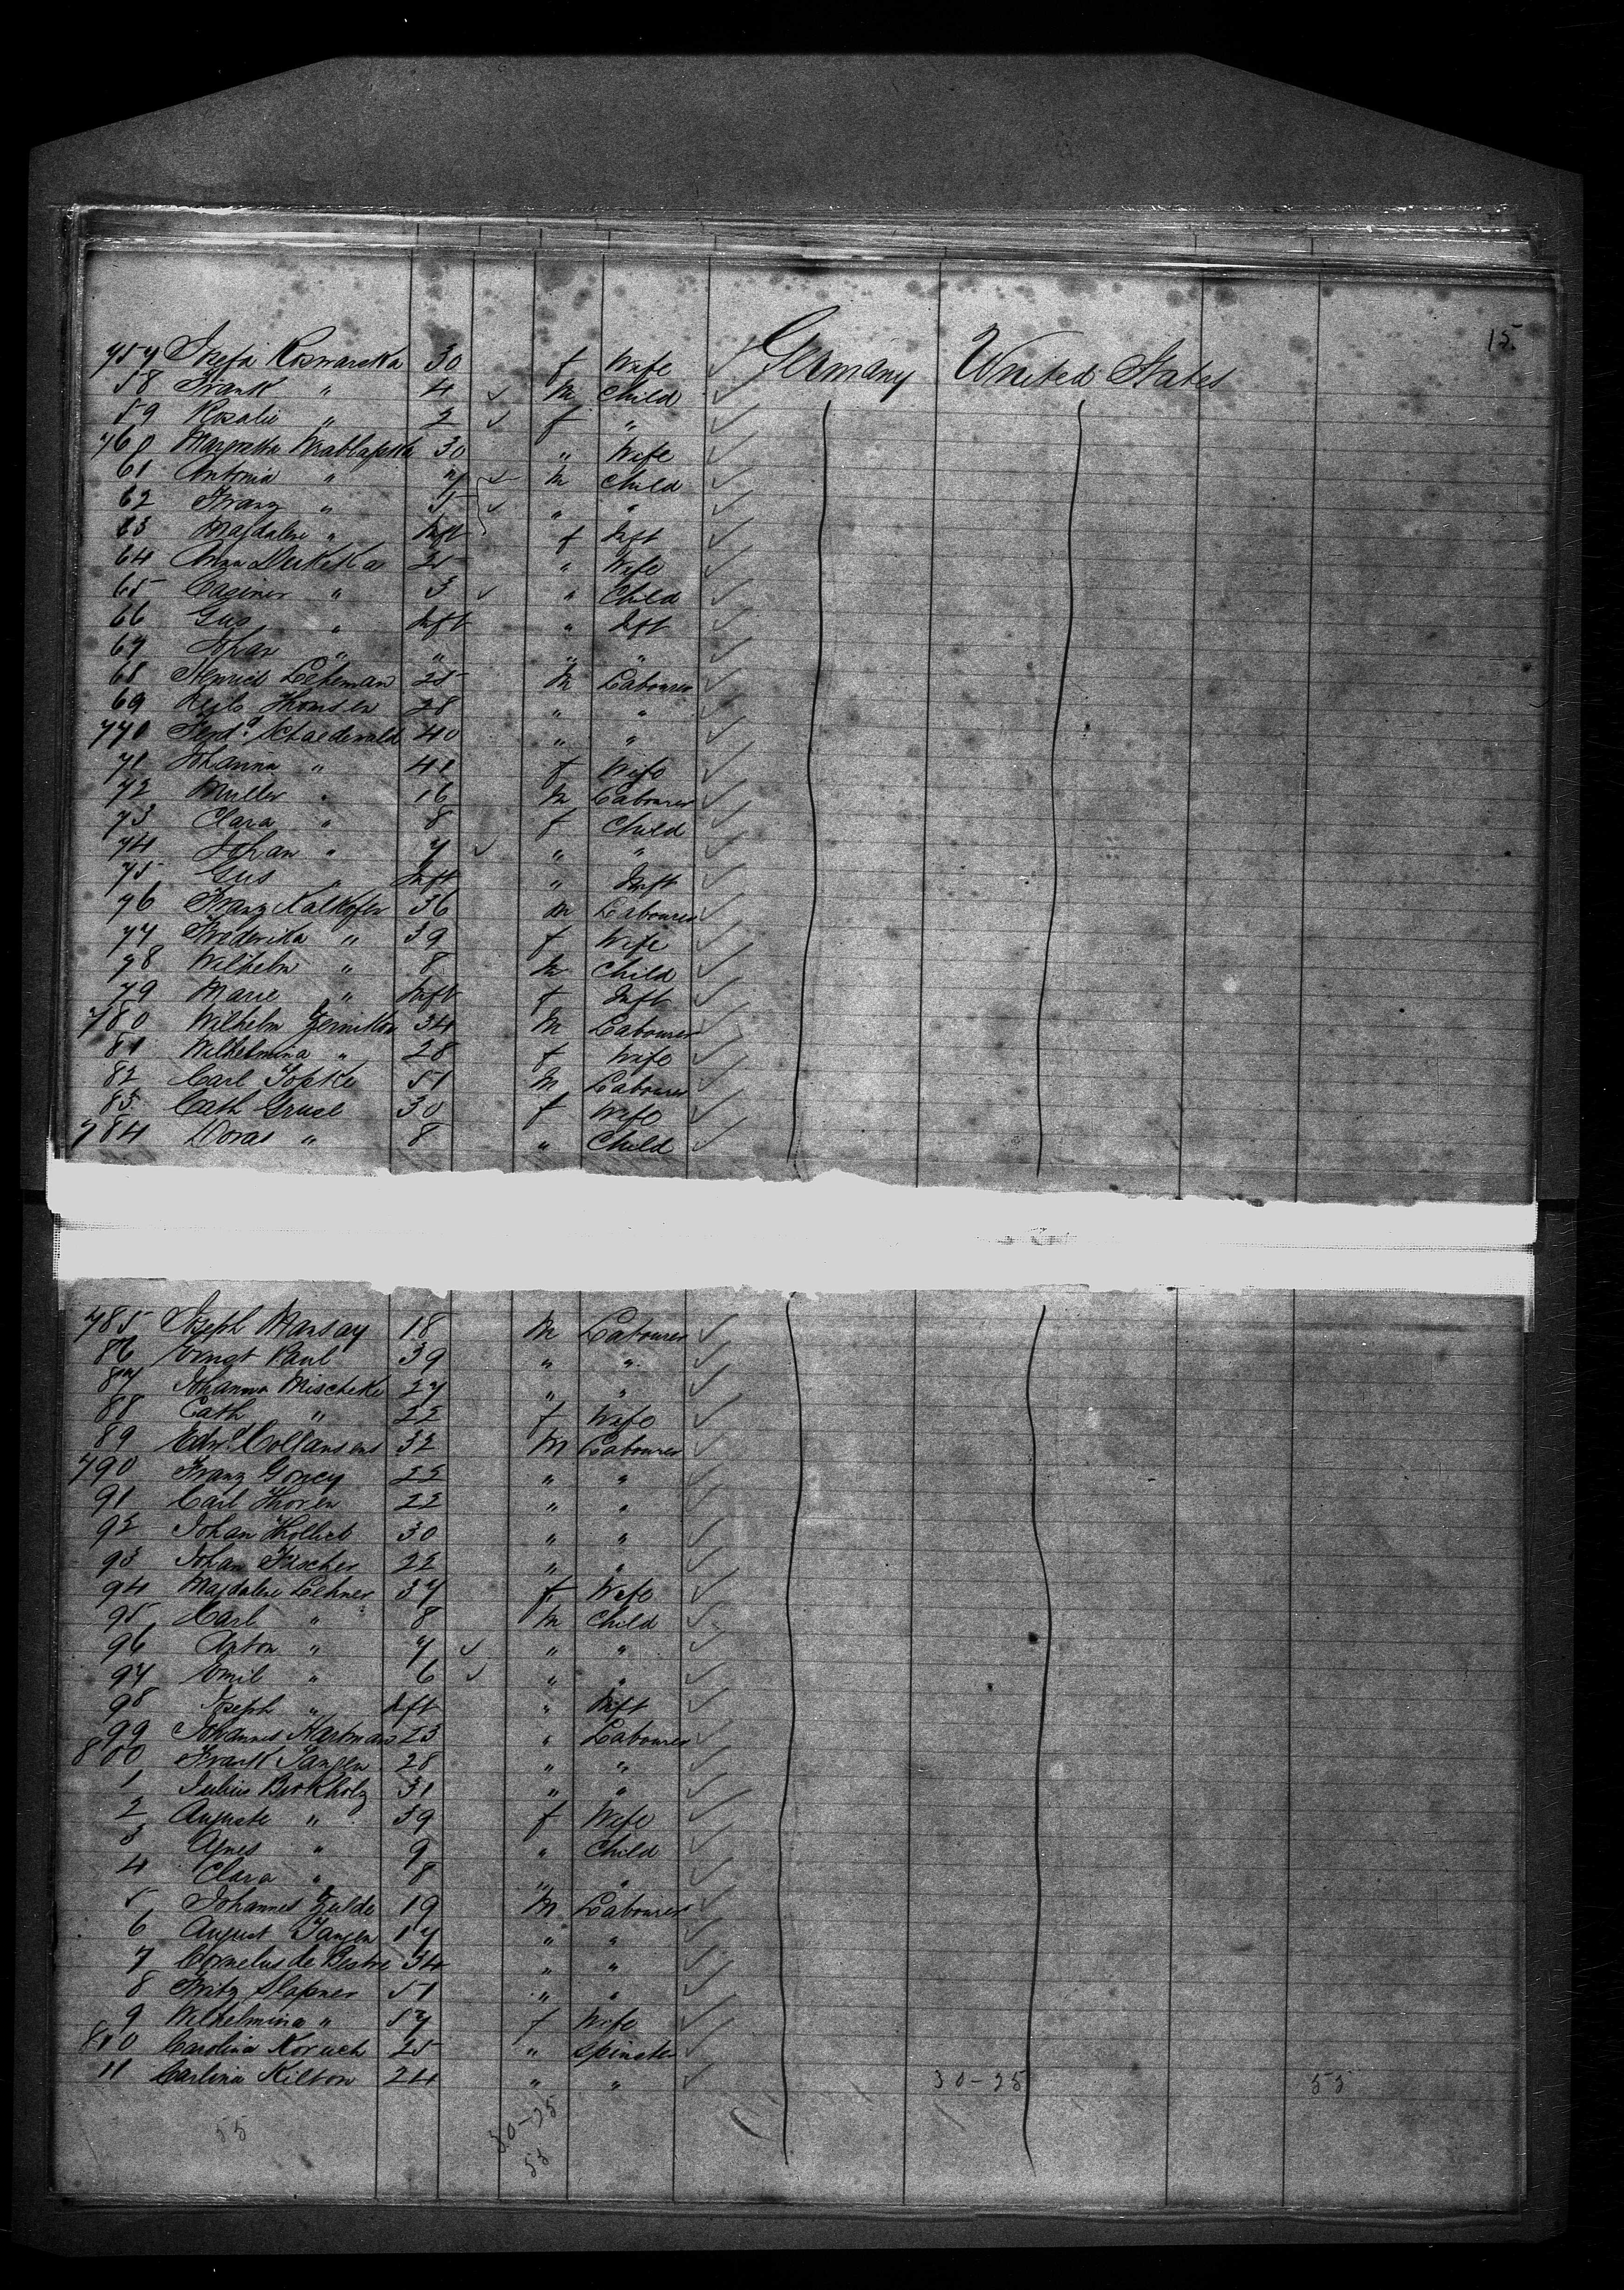 15.
757 Josefa Koswarska 30 f Wife Germany United States
58 Frank " 4 m Child
59 Rosalie " 2 f "
760 Margretta 30 " Wife
61 Antonia " 7 m Child
62 Franz " 5 " "
63 Magdalene " Inft f Inft
64 Anna 25 " Wife
65 " 3 " Child
66 Gus " Inft " Inft
67 Johan " " " "
68 Henrich Leheman 25 m Labourer
69 Thomsen 28 " "
770 Ferd.d Schaedewald 40 " "
71 Johanna " 41 f Wife
72 Muller " 16 m Labourer
73 Clara " 8 f Child
74 Johan " 7 " "
75 Gus " Inft " Inft
76 Franz Kalkofer 36 m Labourer
77 Frederika " 39 f Wife
78 Wilhelm " 8 m Child
79 Marie " Inft f Inft
780 Wilhelm Zernikow 34 m Labourer
81 Wilhelmina " 28 f Wife
82 Carl Topke 51 m Labourer
83 Cath Grusl 30 f Wife
784 Doras " 8 " Child
785 Joseph Marsay 18 m Labourer
86 Ernst Paul 39 " "
87 Johanna Mischeke 27 " "
88 Cath " 22 f Wife
89 Edw.d Collansens 32 m Labourer
790 Franz Goncy 22 " "
91 Carl Thoren 22 " "
92 Johan 30 " "
93 Johan Fischer 22 " "
94 Magdalene Lehner 37 f Wife
95 Karl " 8 m Child
96 Anton " 7 " "
97 Emil " 6 " "
98 Joseph " Inft " Inft
99 Johannes Hartmans 23 " Labourer
800 Frank Jansen 28 " "
1 Julius Birkholz 31 " "
2 Auguste " 39 f Wife
3 Agnes " 9 " Child
4 Clara " 8 " "
5 Johannes Zulde 19 m Labourer
6 August Jansen 17 " "
7 Cornelus de Bestre 34 " "
8 Fritz Slapner 51 " "
9 Wilhelmina " 57 f Wife
810 Carolina Koruch 25 " Spinster
11 Carlina Kilton 24 " "
30-25 55
55 30-25
55